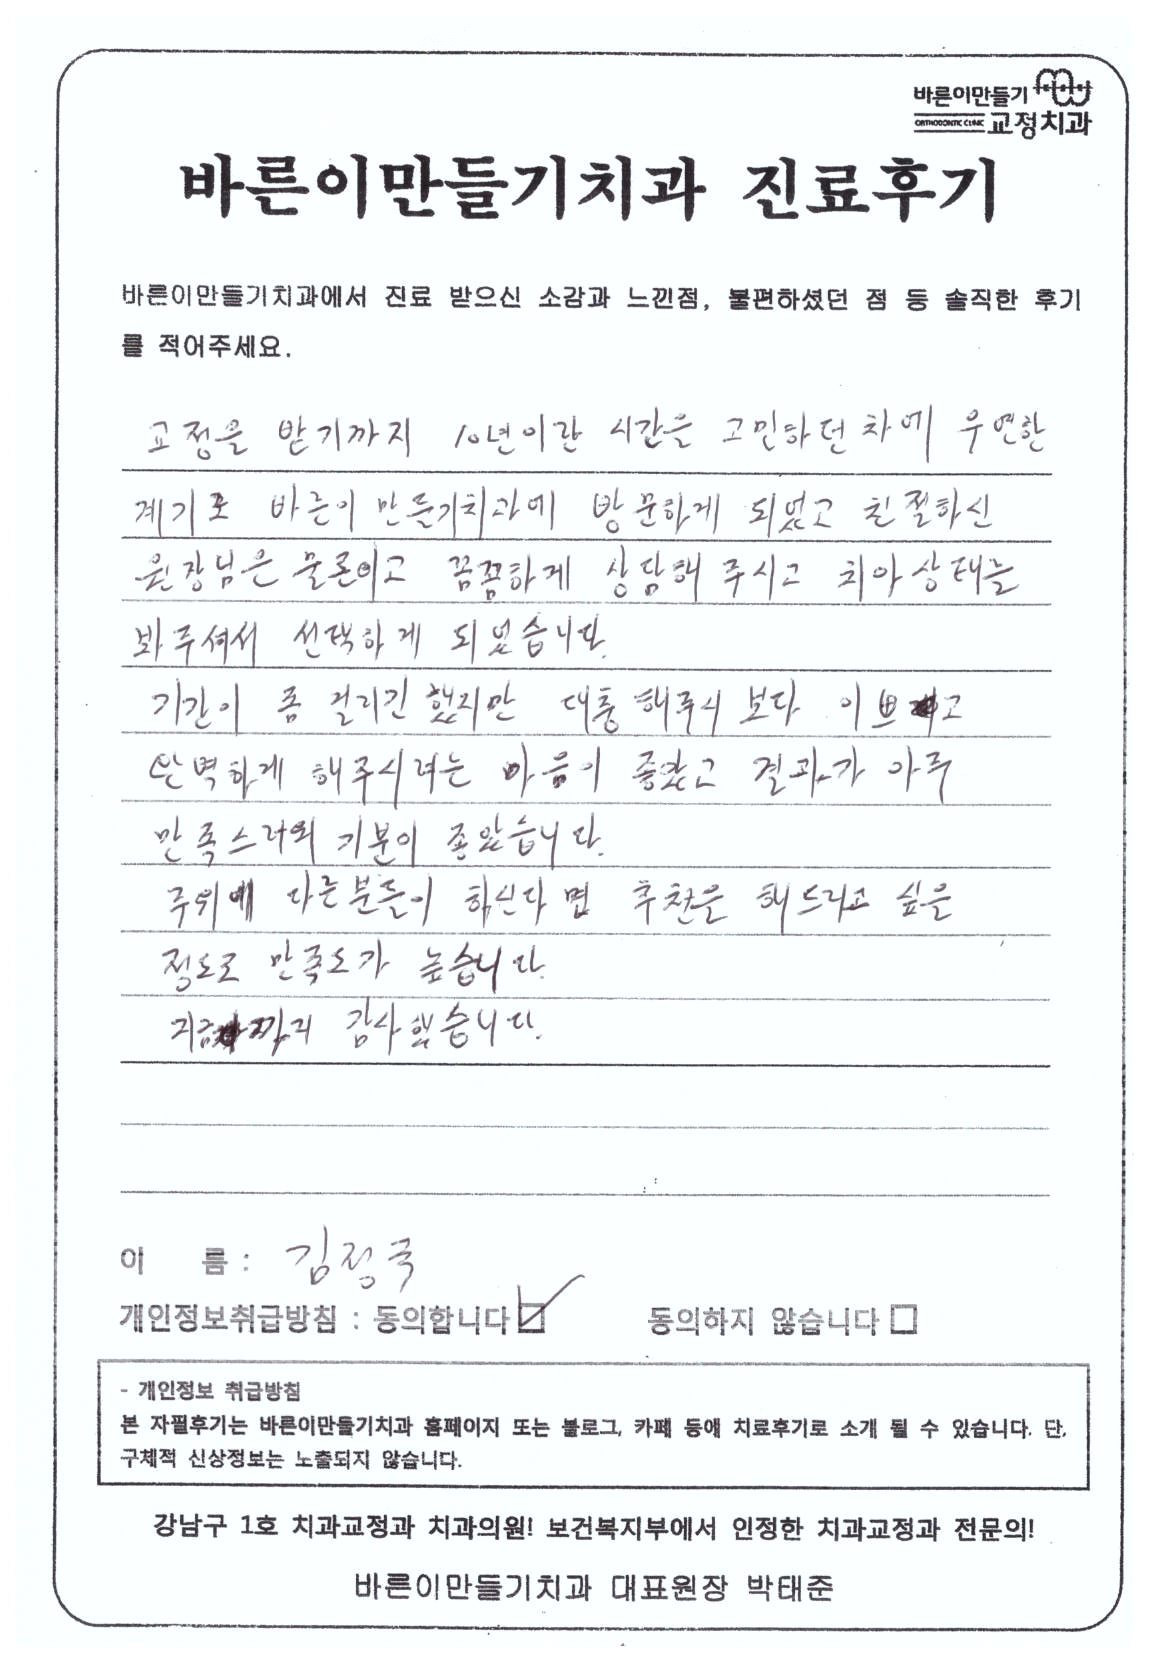 바른이만들기
ORTHODONTIC CLINIC 교정치과
바른이만들기치과 진료후기
바른이만들기치과에서 진료 받으신 소감과 느낀점, 불편하셨던 점 등 솔직한 후기
를 적어주세요.
교정을 받기까지 10년이란 시간을 고민하던 차에 우연한
계기로 바른이 만들기치과에 방문하게 되었고 친절하신
원장님은 물론이고 꼼꼼하게 상담해 주시고 치아상태를
봐주셔서 선택하게 되었습니다.
기간이 좀 걸리긴 했지만 대충해주시 보다 이쁘고
완벽하게 해주시려는 마음이 좋았고 결과가 아주
만족스러워 기분이 좋았습니다.
주위에 다른분들이 하신다면 추천을 해드리고 싶을
정도로 만족도가 높습니다.
지금까지 감사했습니다.
이 름 : 김정국
개인정보취급방침 : 동의합니다 동의하지 않습니다
- 개인정보 취급방침
본 자필후기는 바른이만들기치과 홈페이지 또는 블로그, 카페 등에 치료후기로 소개 될 수 있습니다. 단,
구체적 신상정보는 노출되지 않습니다.
강남구 1호 치과교정과 치과의원! 보건복지부에서 인정한 치과교정과 전문의!
바른이만들기치과 대표원장 박태준